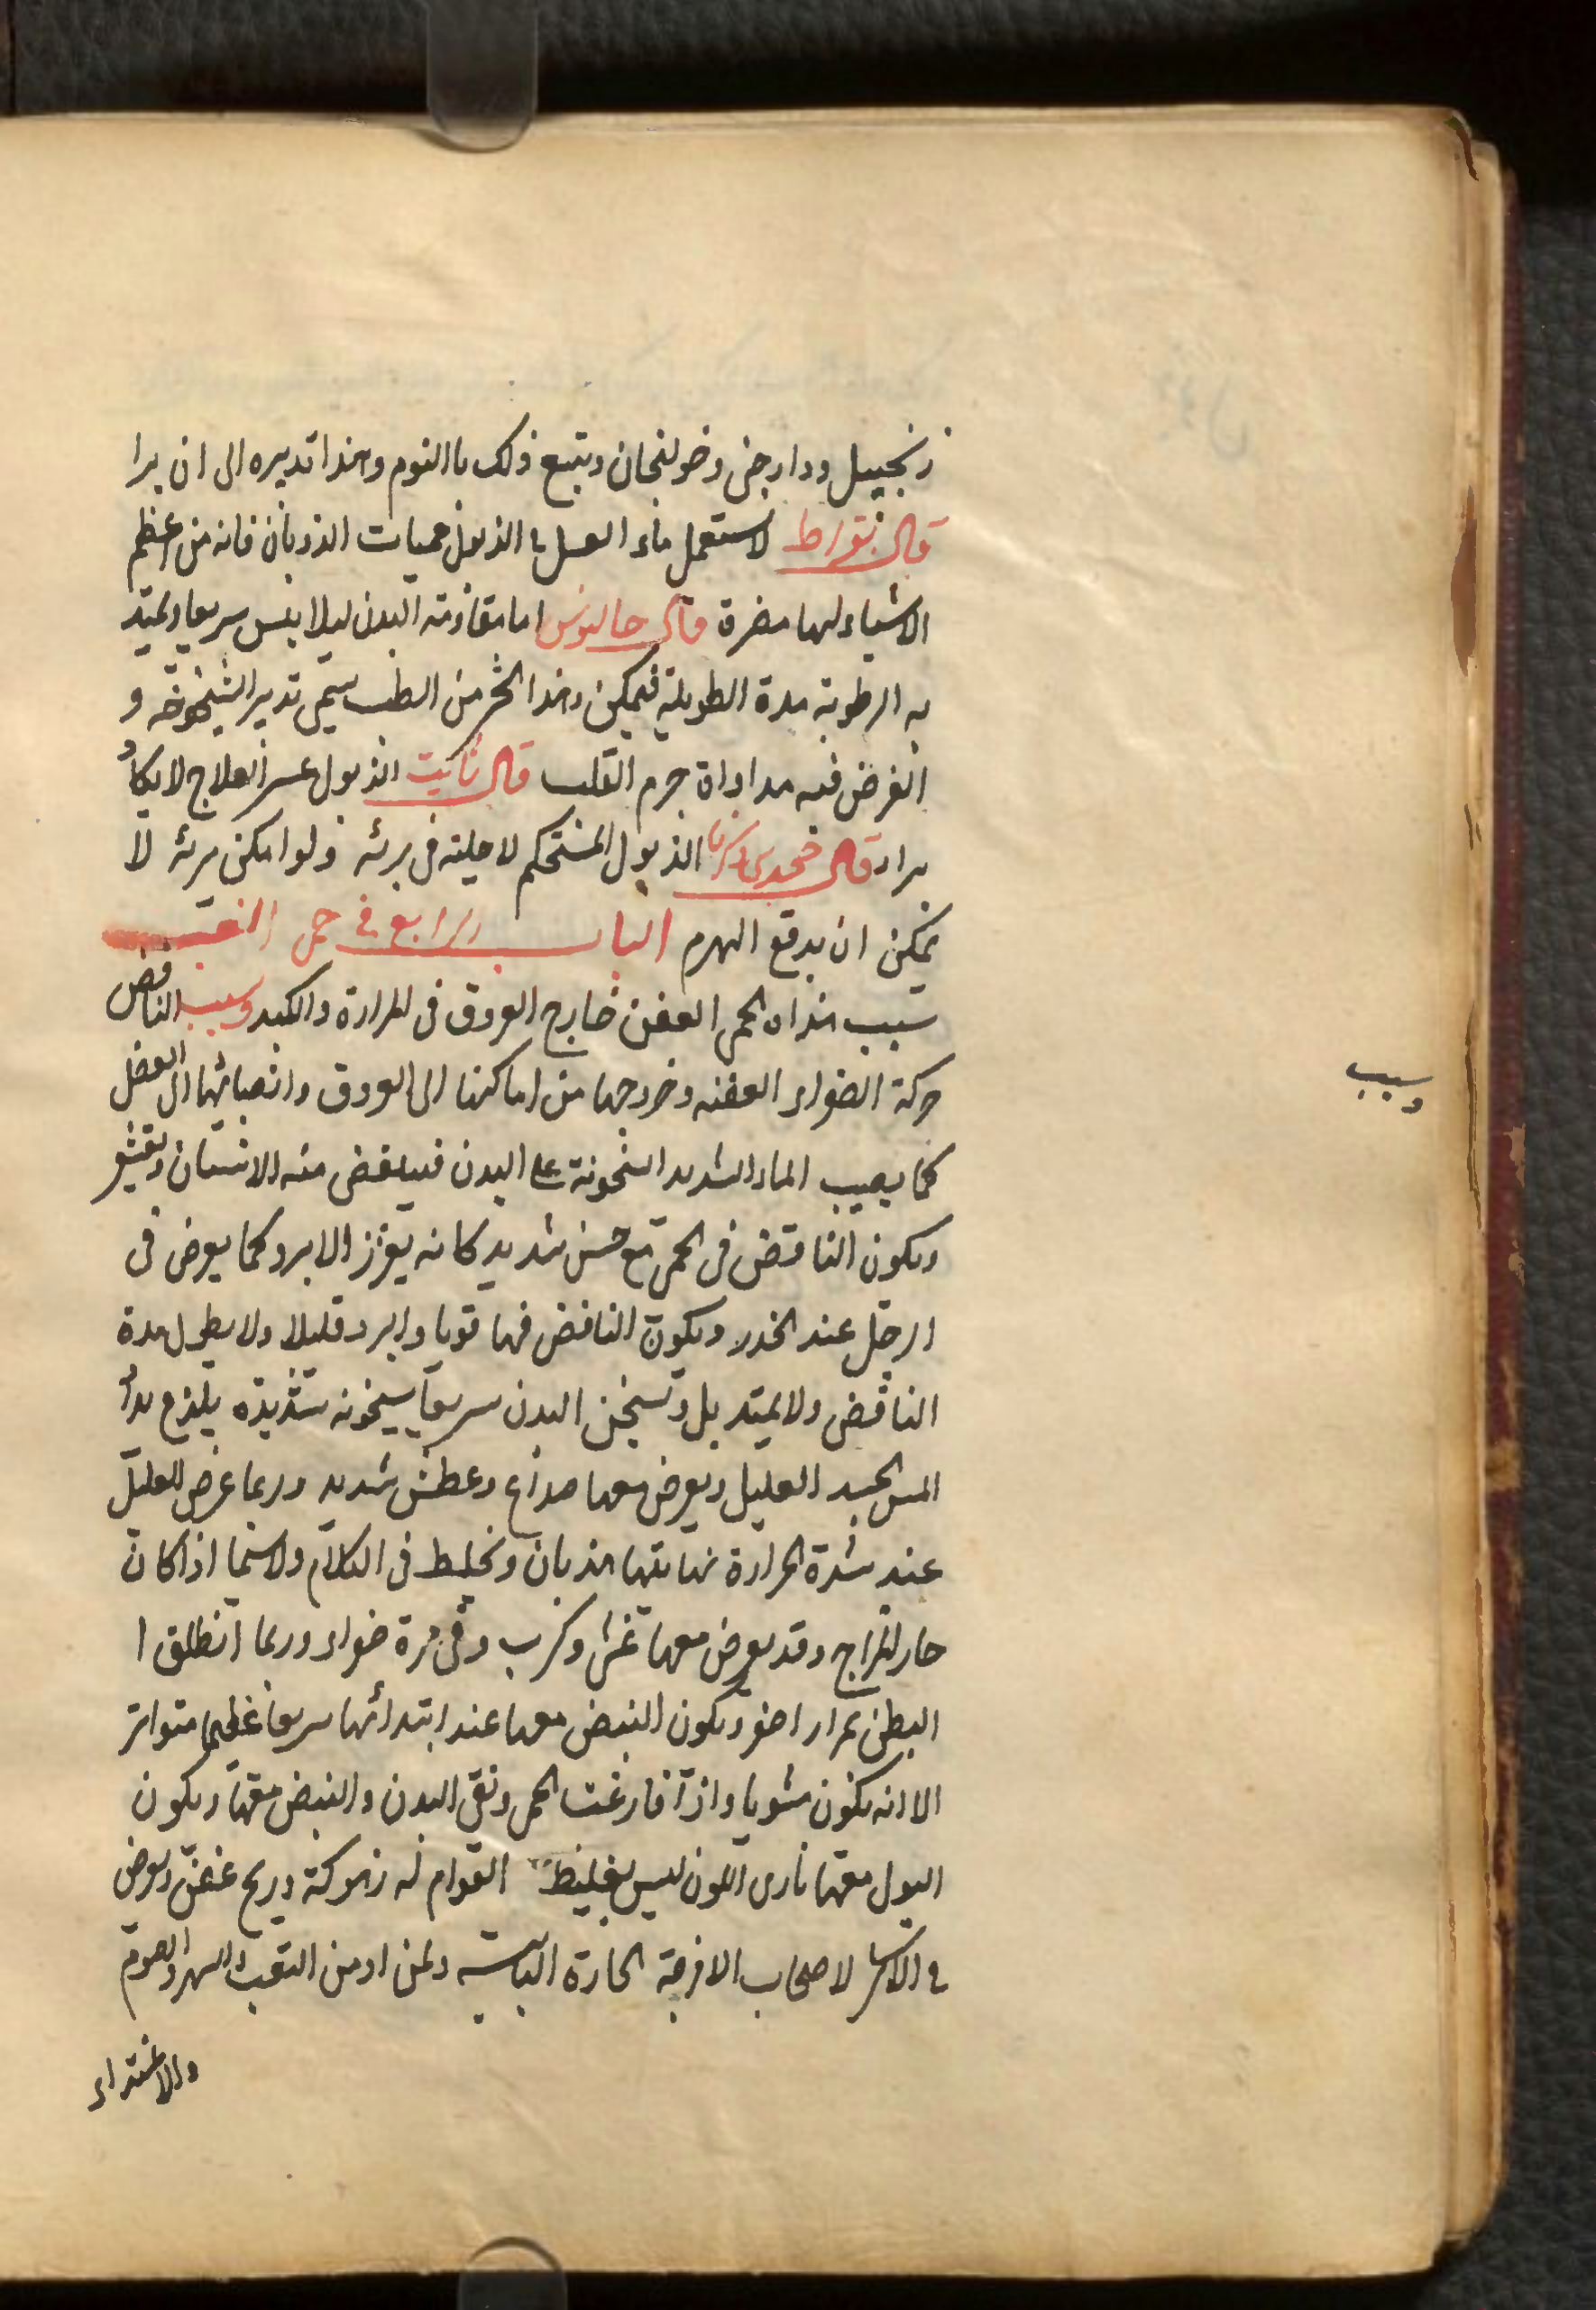 زنجبيل ودارجنى وخولنجان ويتبع ذلك باالنوم وهذا تدبيره الى ان برا
قال بقراط لاستعمل ماء العسل فى الذبول حميات الذوبان فانه من اعظم
الاشياء لها مضرة قال جالينوس اما مقاومته البدن ليلا يبس سريعا وليمتد
به الرطوبة مدة الطويلة فيمكن وهذا الجز من الطب يسمى تدبير الشيخوخة و
الغرض فيه مداواة جرم القلب قال ثابت الذبول عسر العلاج لا يكاد
برا قال محمد بن زكريا الذبول المستحكم لا حيلة فى برئه ولو امكن برئه لا
يمكن ان يدفع الهرم الباب الرابع فى حمى الغب
سبب هذاه الحمى العفن خارج العروق فى المرارة والكبد وسبب النافض
حركة الصفراء العفنه وخروجها من اماكنها الى العروق وانصبابها الى العضل
كما يصيب الماء الشديد السخونة على البدن فينتفض منه الانسان ويقشعر
ويكون النافض فى الحمى مع حس شديد كانه يغرز الابر وكما يعرض فى
الرجل عند الخدر ويكون النافض فيها قويا والبرد قليلا ولا يطول مدة
النافض ولا يمتد بل وتسخن البدن سريعا بسخونه شديدة يلذع يد
المس لجسد العليل ويعرض معها صداع وعطش شديد وربما عرض للعليل
عند شدة الحرارة نهايتها هذيان وتخليط فى الكلام ولاسيما اذا كان
حار المزاج وقد يعرض معها غشى وكرب وقى مرة صفراء وربما انطلق ا
البطن بمرار اصفر ويكون النبض معها عند ابتدائها سريعا عظيما متواتر
الا انه يكون مستويا واذا فارغت الحمى ونقى البدن والنبض معها ويكون
البول معها نارى اللون ليس بغليظ القوام له زهوكة وريح عفن ويعرض
فى الاكثر لاصحاب الامزجة الحارة اليابسه ولمن ادمن التعب والسهر والصوم
والاغتذاء
وسبب